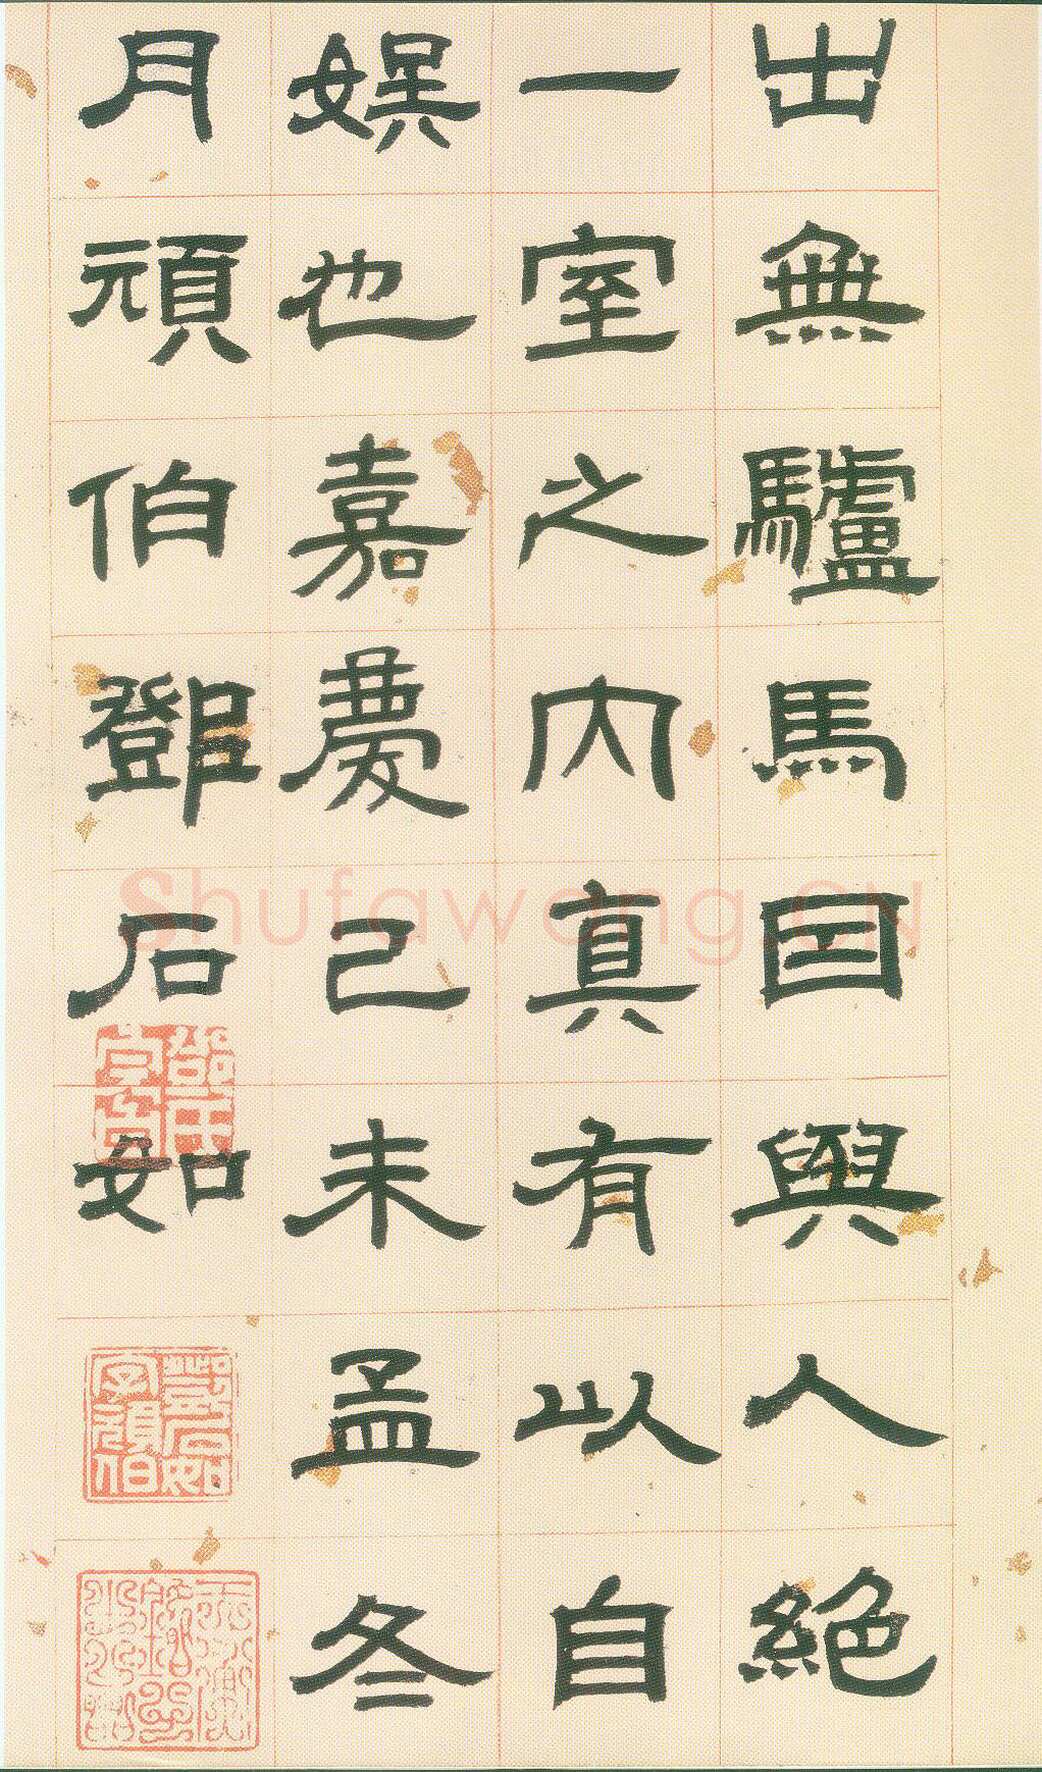 出無驢馬因與人絕
一室之内真有以自
娯也嘉慶己未孟冬
月頑伯鄧石如
鄧石如字頑伯
Shufawang.CN